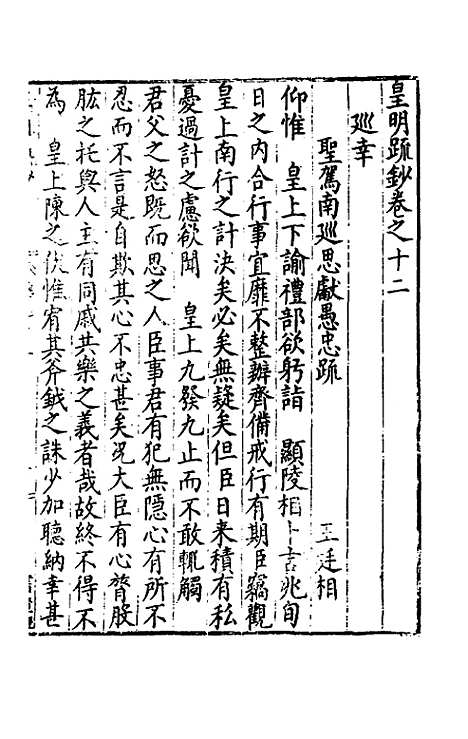 皇明疏鈔卷之十二
廵幸
聖駕南廵思獻愚忠疏
王廷相
仰惟　皇上下諭禮部欲躬詣　顯陵相卜吉兆旬
日之内合行事宜靡不整辦齊備戒行有期臣竊觀
皇上南行之計決矣必矣無疑矣但臣日来積有私
憂過計之慮欲聞　皇上九發九止而不敢輒觸
君父之怒既而思之人臣事君有犯無隱心有所不
忍而不言是自欺其心不忠甚矣况大臣有心膂股
肱之托與人主有同戚共樂之義者哉故終不得不
為　皇上陳之伏惟宥其斧鉞之誅少加聽納幸甚